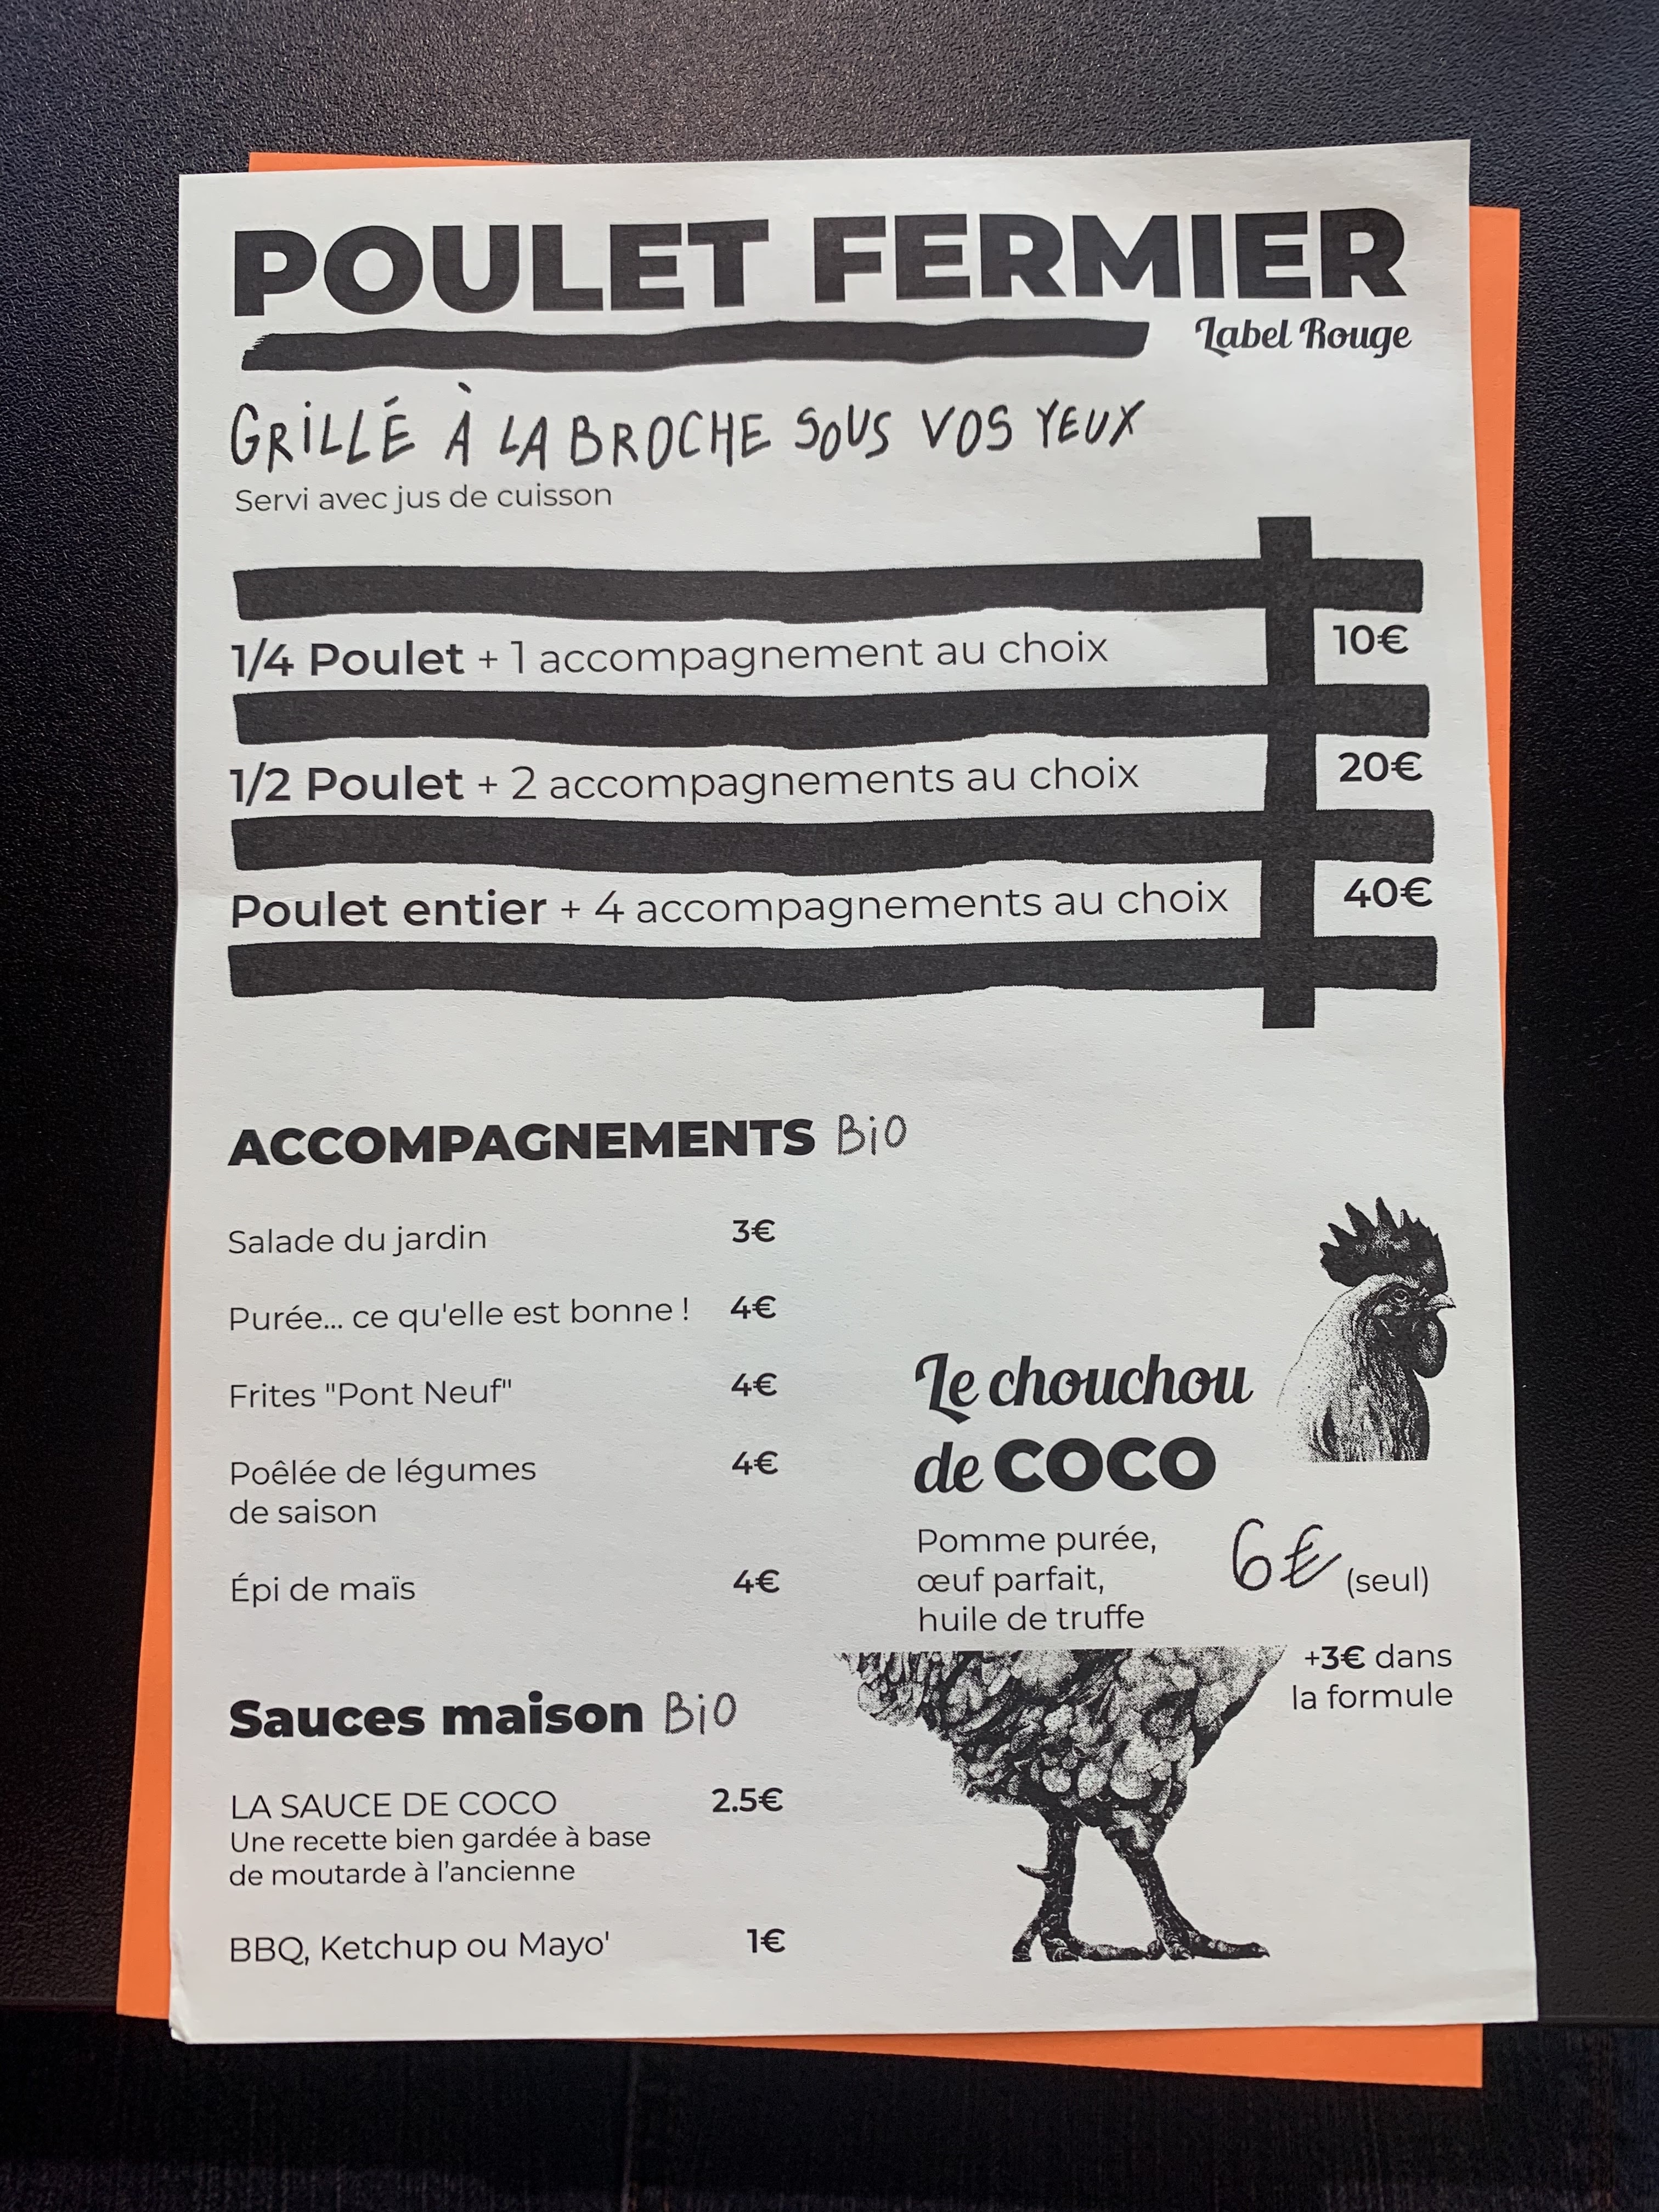 POULET FERMIER
Label Rouge
GRILLÉ À LA BROCHE SOUS VOS YEUX
Servi avec jus de cuisson
1/4 Poulet + 1 accompagnement au choix 10€
1/2 Poulet + 2 accompagnements au choix 20€
Poulet entier + 4 accompagnements au choix 40€
ACCOMPAGNEMENTS BiO
Salade du jardin 3€
Purée... ce qu'elle est bonne ! 4€
Frites "Pont Neuf" 4€
Poêlée de légumes 4€
de saison
Épi de maïs 4€
Le chouchou
de COCO
Pomme purée,
œuf parfait,
huile de truffe
6€ (seul)
+3€ dans
la formule
Sauces maison BiO
LA SAUCE DE COCO 2.5€
Une recette bien gardée à base
de moutarde à l’ancienne
BBQ, Ketchup ou Mayo' 1€